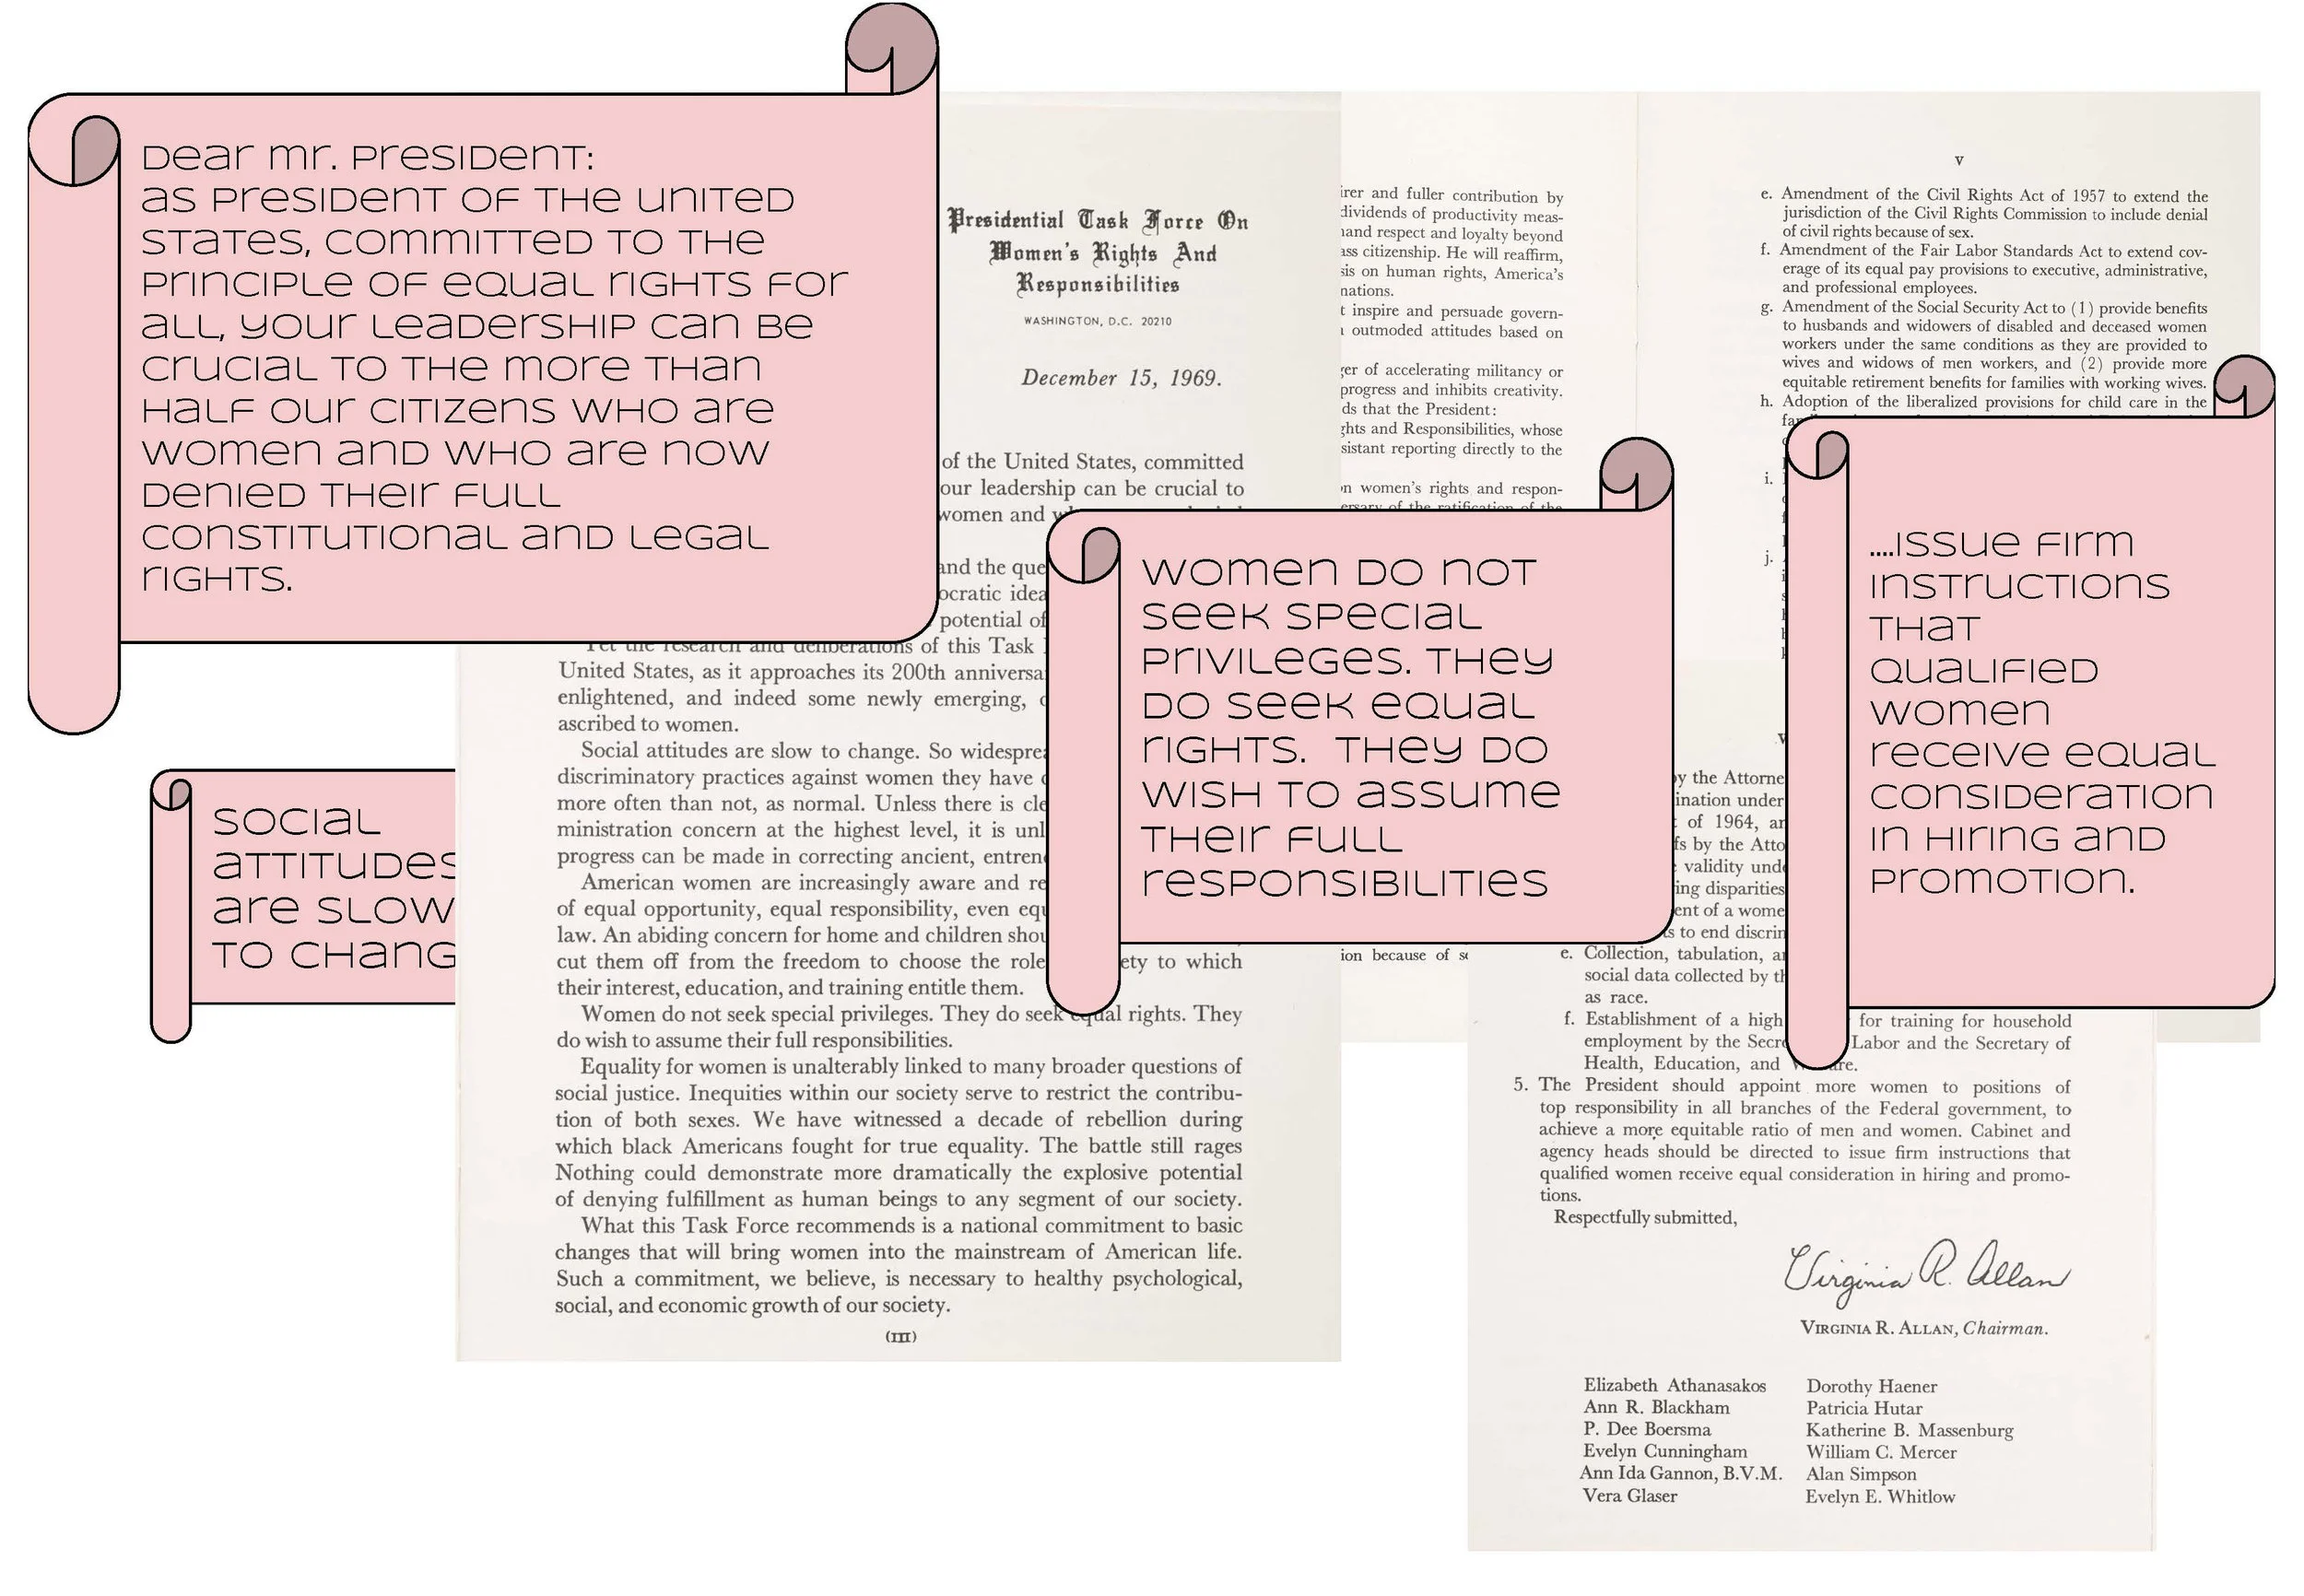 Dear Mr. President:
As President of the United
States, committed to the
principle of equal rights for
all, your leadership can be
crucial to the more than
half our citizens who are
women and who are now
denied their full
constitutional and legal
rights.
Social
attitudes
are slow
to chang
Presidential Task Force On
Women's Rights And
Responsibilities
WASHINGTON, D.C. 20210
December 15, 1969.
of the United States, committed
our leadership can be crucial to
women and
and the que
ocratic idea
potential of
Yet the research and deliberations of this Task
United States, as it approaches its 200th anniversa
enlightened, and indeed some newly emerging,
ascribed to women.
Social attitudes are slow to change. So widesprea
discriminatory practices against women they have
more often than not, as normal. Unless there is cle
ministration concern at the highest level, it is unl
progress can be made in correcting ancient, entren
American women are increasingly aware and re
of equal opportunity, equal responsibility, even equ
law. An abiding concern for home and children shou
cut them off from the freedom to choose the role ety to which
their interest, education, and training entitle them.
Women do not seek special privileges. They do seek equal rights. They
do wish to assume their full responsibilities.
Equality for women is unalterably linked to many broader questions of
social justice. Inequities within our society serve to restrict the contribu-
tion of both sexes. We have witnessed a decade of rebellion during
which black Americans fought for true equality. The battle still rages
Nothing could demonstrate more dramatically the explosive potential
of denying fulfillment as human beings to any segment of our society.
What this Task Force recommends is a national commitment to basic
changes that will bring women into the mainstream of American life.
Such a commitment, we believe, is necessary to healthy psychological,
social, and economic growth of our society.
(III)
irer and fuller contribution by
dividends of productivity meas-
and respect and loyalty beyond
ass citizenship. He will reaffirm,
sis on human rights, America's
nations.
t inspire and persuade govern-
outmoded attitudes based on
er of accelerating militancy or
progress and inhibits creativity.
ds that the President:
ghts and Responsibilities, whose
sistant reporting directly to the
n women's rights and respon-
ersary of the ratification of the
ion because of s
Women do not
seek special
privileges. They
do seek equal
rights. They do
wish to assume
their full
responsibilities
V
e. Amendment of the Civil Rights Act of 1957 to extend the
jurisdiction of the Civil Rights Commission to include denial
of civil rights because of sex.
f. Amendment of the Fair Labor Standards Act to extend cov-
erage of its equal pay provisions to executive, administrative,
and professional employees.
g. Amendment of the Social Security Act to (1) provide benefits
to husbands and widowers of disabled and deceased women
workers under the same conditions as they are provided to
wives and widows of men workers, and (2) provide more
equitable retirement benefits for families with working wives.
h. Adoption of the liberalized provisions for child care in the
i.
j.
....issue firm
instructions
that
qualified
women
receive equal
consideration
in hiring and
promotion.
by the Attorne
ination under
of 1964, an
fs by the Atto
validity unde
ing disparities
ent of a wome
ts to end discrin
e. Collection, tabulation, a
social data collected by th
as race.
f. Establishment of a high for training for household
employment by the Secre Labor and the Secretary of
Health, Education, and Welfare.
5. The President should appoint more women to positions of
top responsibility in all branches of the Federal government, to
achieve a more equitable ratio of men and women. Cabinet and
agency heads should be directed to issue firm instructions that
qualified women receive equal consideration in hiring and promo-
tions.
Respectfully submitted,
Virginia R. Allan
VIRGINIA R. ALLAN, Chairman.
Elizabeth Athanasakos
Ann R. Blackham
P. Dee Boersma
Evelyn Cunningham
Ann Ida Gannon, B.V.M.
Vera Glaser
Dorothy Haener
Patricia Hutar
Katherine B. Massenburg
William C. Mercer
Alan Simpson
Evelyn E. Whitlow